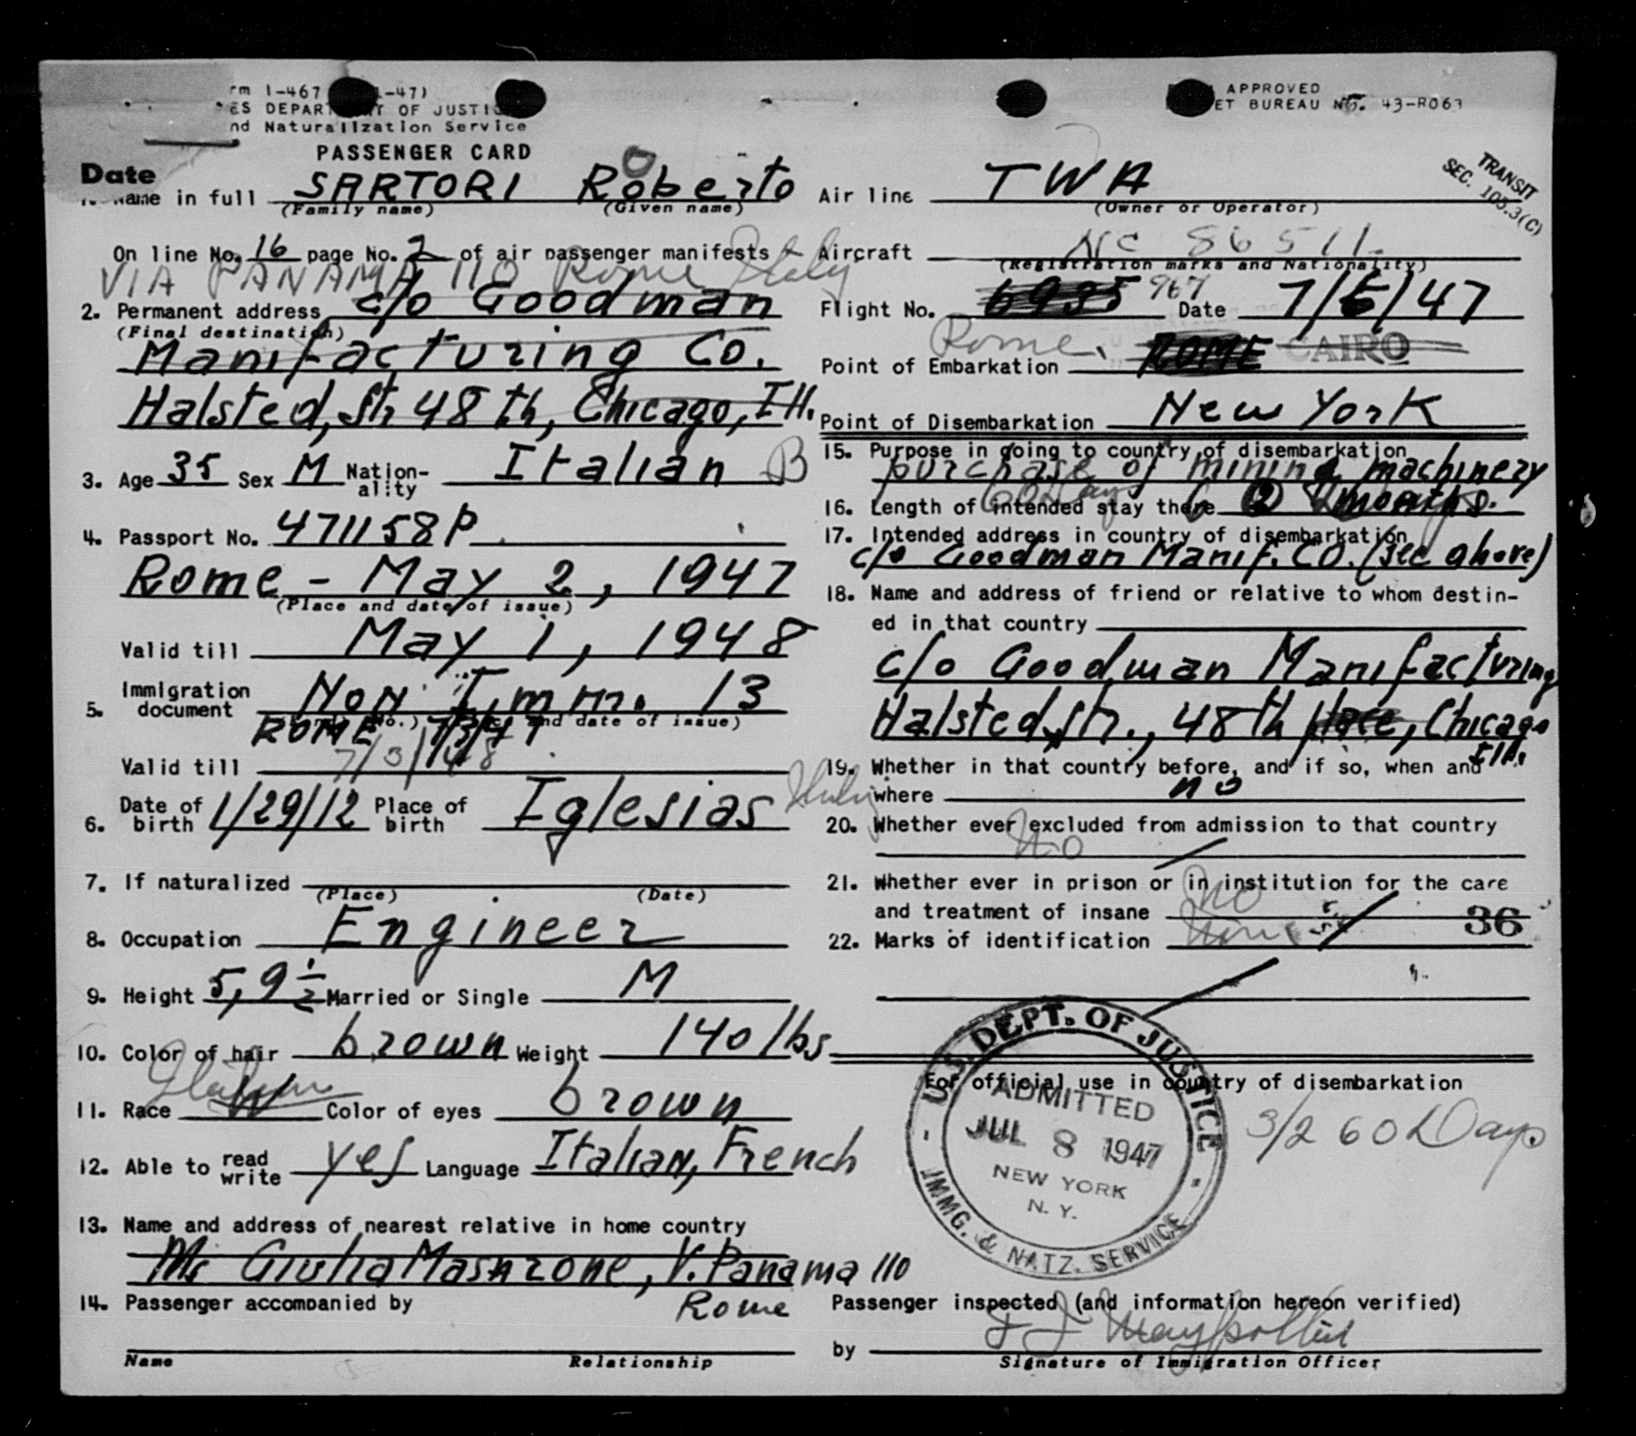 rm I-467 1-47)
ES DEPARTMENT OF JUSTICE
nd Naturalization Service
PASSENGER CARD
APPROVED
ET BUREAU No. 43-R063
TRANSIT
SEC. 105.3(C)
Date
1. Name in full SARTORI Roberto
(Family name) (Given name)
On line No. 16 page No. 2 of air passenger manifests
VIA PANAMA 110 Rome Italy
2. Permanent address c/o Goodman
(Final destination)
Manifacturing Co.
Halsted, Str 48 th, Chicago, Ill.
3. Age 35 Sex M Nation-ality Italian B
4. Passport No. 471158P
Rome - May 2, 1947
(Place and date of issue)
Valid till May 1, 1948
5. Immigration document Non Imm. 13
(No.) and date of issue)
ROME 7/3/47
Valid till 7/3/48
6. Date of birth 1/29/12 Place of birth Iglesias Italy
7. If naturalized
(Place) (Date)
8. Occupation Engineer
9. Height 5,9 1/2 Married or Single M
10. Color of hair brown Weight 140 lbs
11. Race W Italian Color of eyes brown
12. Able to read write yes Language Italian, French
13. Name and address of nearest relative in home country
Giulia , V. Panama 110
Rome
14. Passenger accompanied by
Name Relationship
Air line TWA
(Owner or Operator)
Aircraft NC 86511
(Registration marks and Nationality)
Flight No. 6935 967 Date 7/6/47
Point of Embarkation Rome ROME CAIRO
Point of Disembarkation New York
15. Purpose in going to country of disembarkation
purchase of mining machinery
16. Length of intended stay there 60 Days months.
17. Intended address in country of disembarkation
c/o Goodman Manif. CO. (see above)
18. Name and address of friend or relative to whom destin-
ed in that country
c/o Goodman Manifacturing
Halsted, Str., 48th place, Chicago
Ill.
19. Whether in that country before, and if so, when and
where no
20. Whether ever excluded from admission to that country
No
21. Whether ever in prison or in institution for the care
and treatment of insane no
22. Marks of identification None
36
For official use in country of disembarkation
3/2 60 Days
U.S. DEPT. OF JUSTICE
ADMITTED
JUL 8 1947
NEW YORK
N. Y.
IMMG. & NATZ. SERVICE
Passenger inspected (and information hereon verified)
by
Signature of Immigration Officer